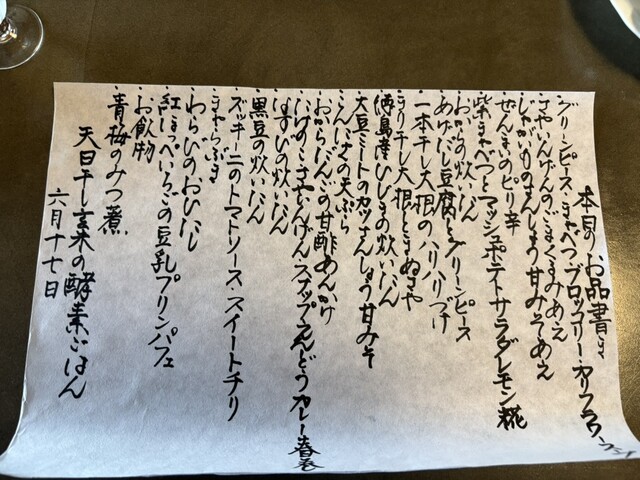 本日のお品書き
・グリーンピース・きゃべつ・ブロッコリー・カリフラワー
・さやいんげんのごまくるみあえ
・じゃがいものさんしょう甘みそあえ
・ぜんまいのピリ辛
・紫きゃべつとマッシュポテトサラダレモン糀
・おからの炊いたん
・あげだし豆腐とグリーンピース
・一本干し大根のハリハリづけ
・きり干し大根ときぬさや
・徳島産ひじきの炊いたん
・大豆ミートのカツさんしょう甘みそ
・こんにゃくの天ぷら
・おからだんごの甘酢あんかけ
・たけのこさやいんげん・スナップえんどうカレー春巻
・はすいもの炊いたん
・黒豆の炊いたん
・ズッキーニのトマトソース・スイートチリ
・きゃらぶき
・わらびのおひたし
・紅ほっぺいちごの豆乳プリンパフェ
・お飲物
・青梅のみつ煮
天日干し玄米の酵素ごはん
六月十七日